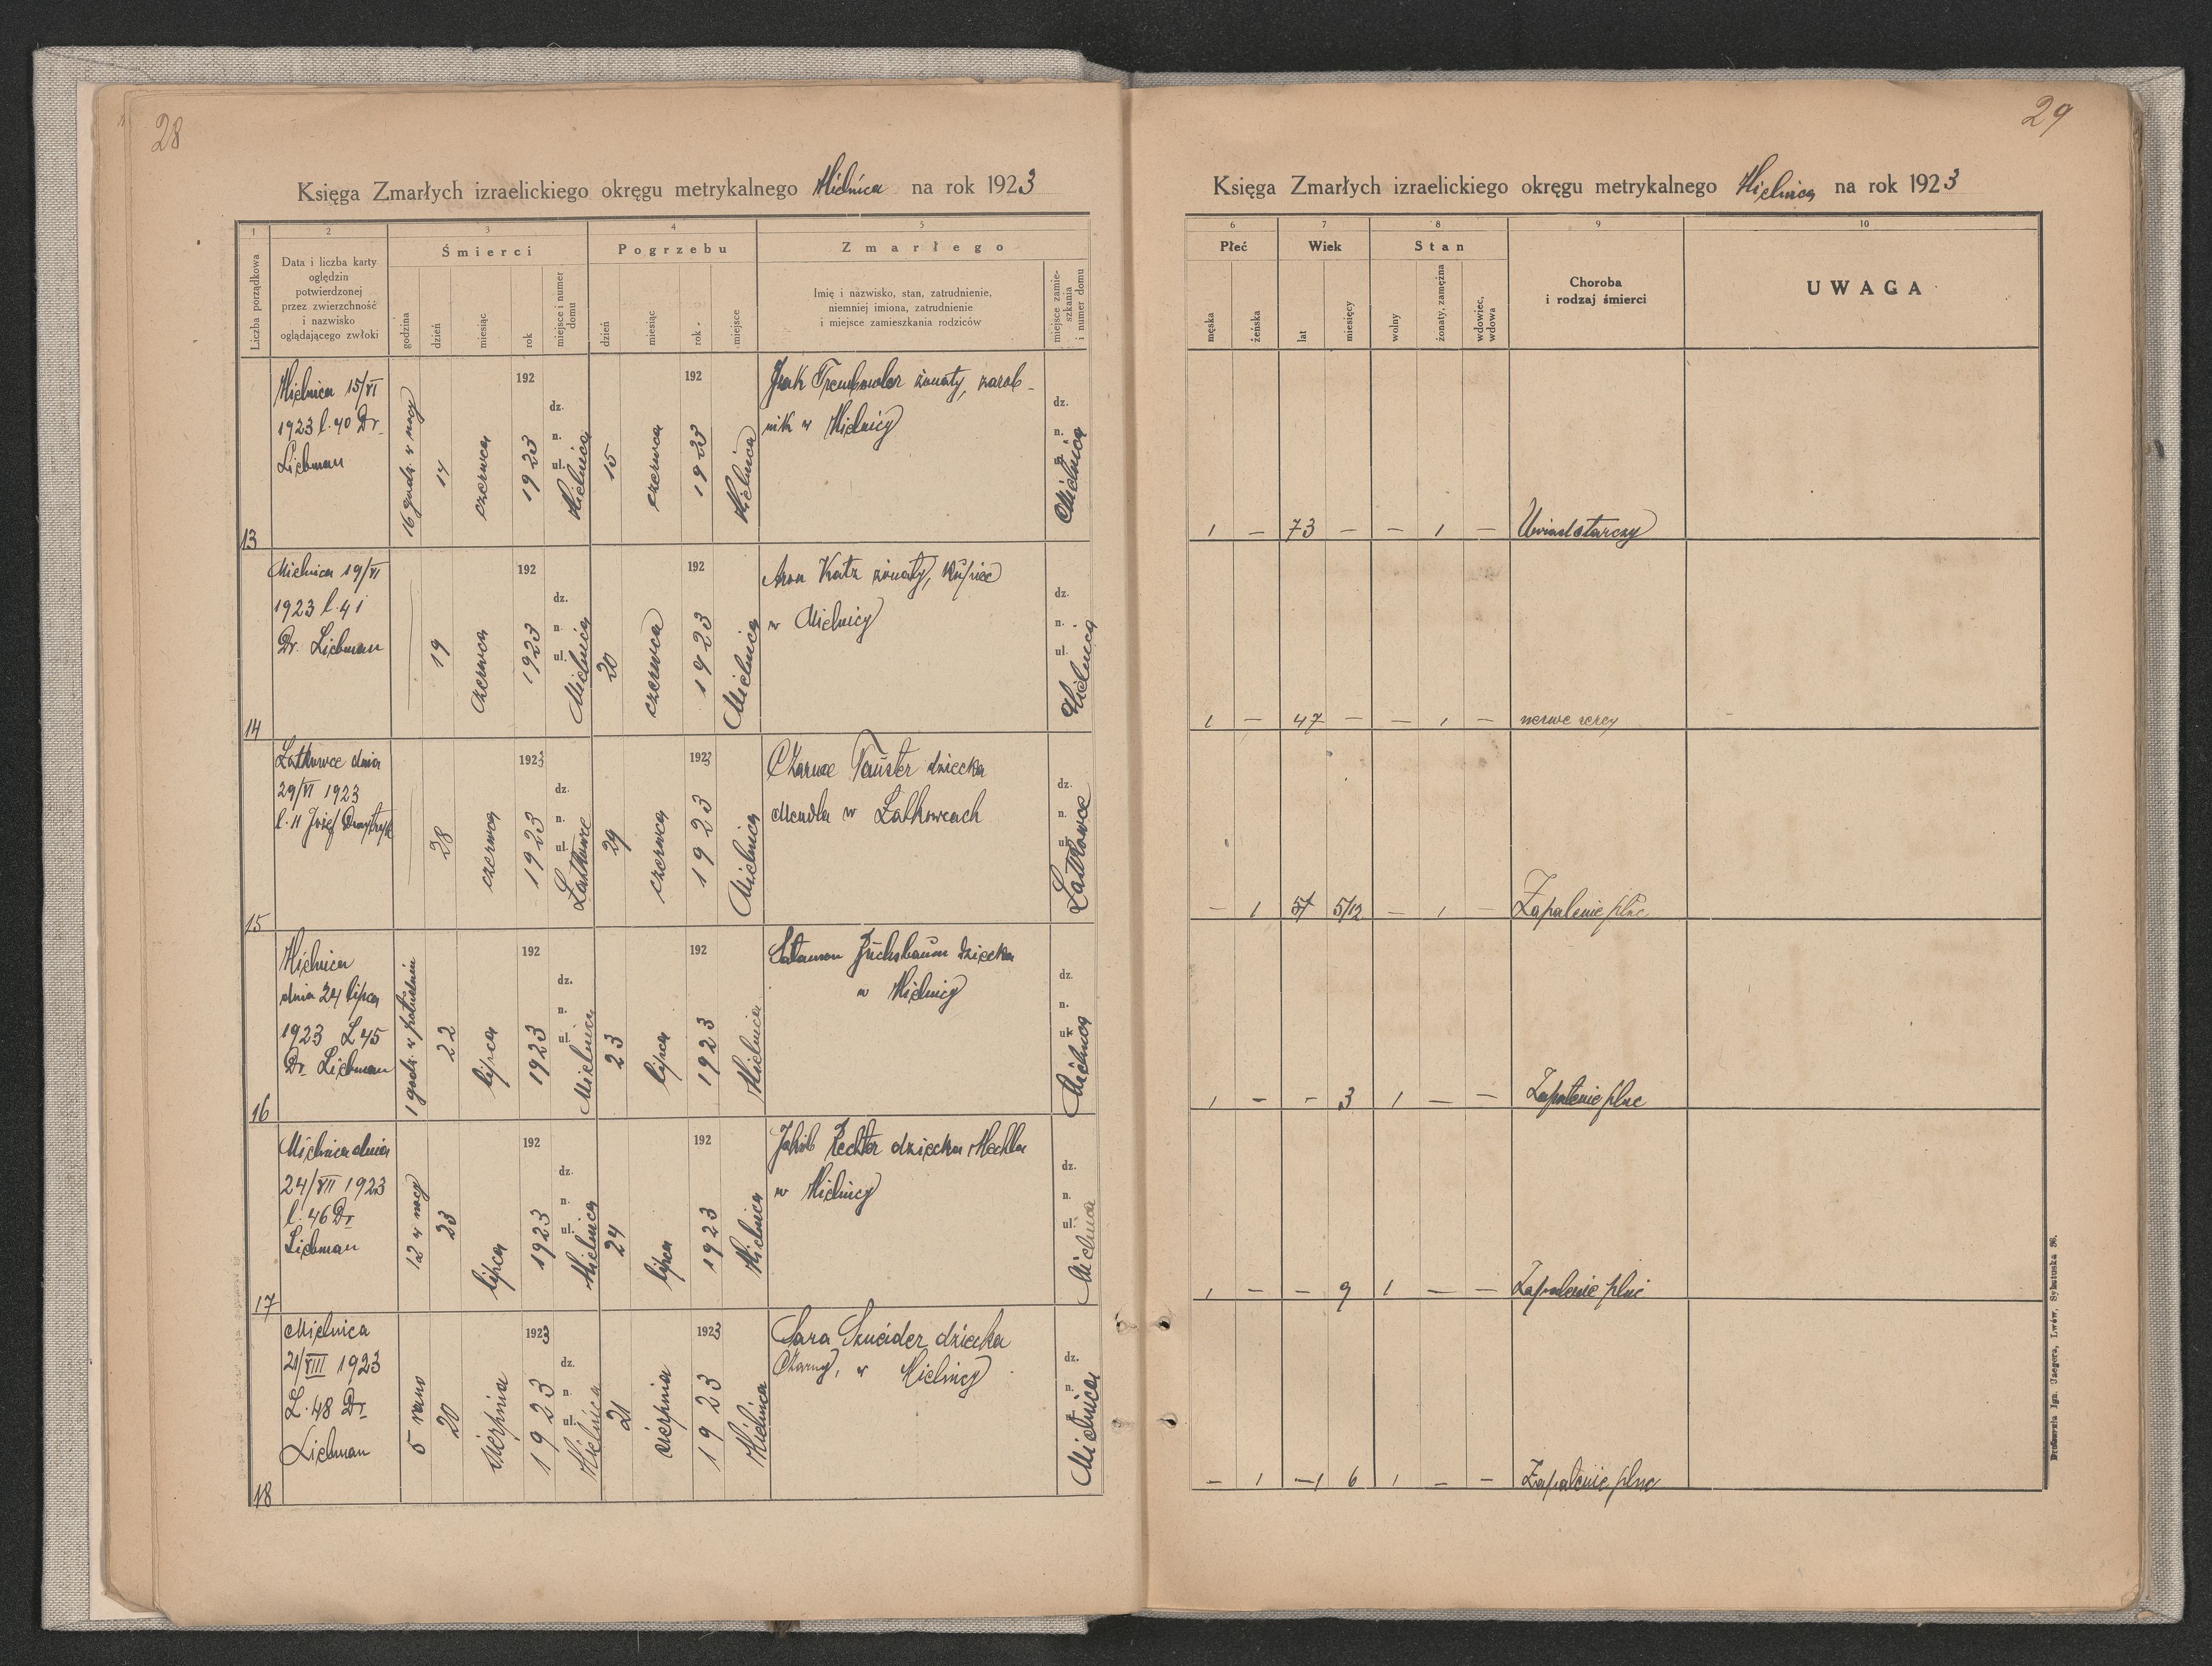 28
Księga Zmarłych izraelickiego okręgu metrykalnego Mielnica na rok 1923
1
2
3
4
5
Liczba porządkowa
Data i liczba karty
oględzin
potwierdzonej
przez zwierzchność
i nazwisko
oglądającego zwłoki
Śmierci
godzina
dzień
miesiąc
rok
miejsce i numer
domu
Pogrzebu
dzień
miesiąc
rok
miejsce
Zmarłego
Imię i nazwisko, stan, zatrudnienie,
niemniej imiona, zatrudnienie
i miejsce zamieszkania rodziców
miejsce zamie-
szkania
i numer domu
13
Mielnica 15/VI
1923 l. 40 Dr.
Liebman
16 godz. w nocy
14
czerwca
192
1923
dz.
n.
ul.
Mielnica
15
czerwca
192
1923
Mielnica
Trembowler żonaty, zarob-
nik w Mielnicy
dz.
n.
Mielnica
14
Mielnica 19/VI
1923 l. 41
Dr. Liebman
19
czerwca
192
1923
dz.
n.
ul.
Mielnica
20
czerwca
192
1923
Mielnica
Aron Katz żonaty, kupiec
w Mielnicy
dz.
n.
ul.
Mielnica
15
Latkowce dnia
29/VI 1923
l. 11 Józef
28
czerwca
1923
1923
dz.
n.
ul.
Latkowce
29
czerwca
1923
1923
Mielnica
Charne Fauster dziecka
Mendla w Latkowcach
dz.
n.
ul.
Latkowce
16
Mielnica
dnia 24 lipca
1923 L 45
Dr. Liebman
1 godz. w południe
22
lipca
192
1923
dz.
n.
ul.
Mielnica
23
lipca
192
1923
Mielnica
Salamon Fuchsbaum dziecka
w Mielnicy
dz.
n.
ul.
Mielnica
17
Mielnica dnia
24/VII 1923
l. 46 Dr.
Liebman
12 w nocy
23
lipca
192
1923
dz.
n.
ul.
Mielnica
24
lipca
192
1923
Mielnica
Jakób Rechter dziecka Mechla
w Mielnicy
dz.
n.
ul.
Mielnica
18
Mielnica
21/VIII 1923
L. 48 Dr.
Liebman
5 rano
20
sierpnia
1923
1923
dz.
n.
ul.
Mielnica
21
sierpnia
1923
1923
Mielnica
Sara Szneider dziecka
Charny, w Mielnicy
dz.
n.
Mielnica
29
Księga Zmarłych izraelickiego okręgu metrykalnego Mielnica na rok 1923
6
7
8
9
10
Płeć
męska
żeńska
Wiek
lat
miesięcy
Stan
wolny
żonaty, zamężna
wdowiec,
wdowa
Choroba
i rodzaj śmierci
UWAGA
1 — 73 — — 1 — Uwiad starczy
1 — 47 — — 1 —
— 1 5/12 — 1 — Zapalenie płuc
1 — — 3 1 — — Zapalenie płuc
1 — — 9 1 — — Zapalenie płuc
— 1 — 6 1 — — Zapalenie płuc
Drukarnia Ign. Jaegera, Lwów, Sykstuska 36.